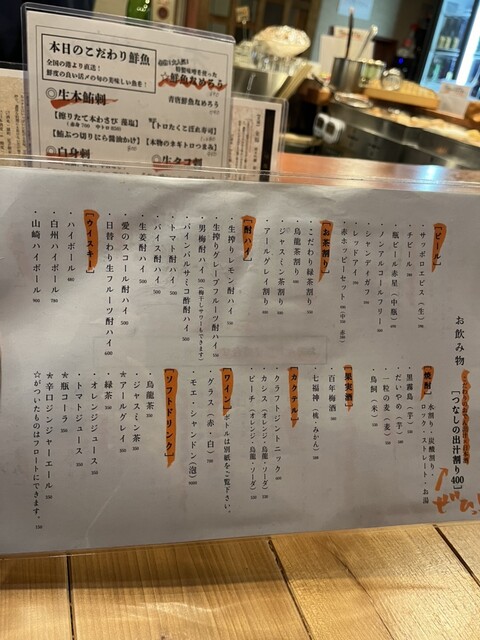 本日のこだわり鮮魚
全国の港より直送!
鮮度の良い活〆の旬の美味しい魚を!
◎生本鮪刺
【擦りたて本わさび 藻塩】
【鮪ぶつ切りむら醤油かけ】
◎白身刺
特製味噌を使った
☆鮮魚なめろう
青唐鮮魚なめろう
【トロたくこぼれ寿司】
【本物のネギトロつまみ】
◎生タコ刺
お飲み物
[つなしの出汁割り400]
ぜひっ!
[ビール]
・サッポロ ヱビス(生)
・チビール
・瓶ビール 赤星(中瓶)
・ノンアルコールフリー
・シャンディガフ
・レッドアイ
・赤ホッピーセット
[お茶割り]
・こだわり緑茶割り
・烏龍茶割り
・ジャスミン茶割り
・アールグレイ割り
[酎ハイ]
・生搾りレモン酎ハイ
・生搾りグレープフルーツ酎ハイ
・男梅酎ハイ(梅干しサワーもできます)
・パインバルサミコ酢酎ハイ 500
・トマト酎ハイ 500
・バイス酎ハイ 500
・生姜酎ハイ
・愛のスコール酎ハイ 500
・日替わり生フルーツ酎ハイ 600
[ウイスキー]
・ハイボール
・白州ハイボール
・山崎ハイボール 900
[焼酎]水割り・炭酸割り・
ロック・ストレート・お湯
・黒霧島(芋)
・だいやめ(芋)
・一粒の麦(麦)
・鳥飼(米)
[果実酒]
・百年梅酒
・七福神(桃・みかん)
[カクテル]
・クラフトジントニック
・カシス(オレンジ・烏龍・ソーダ)
・ピーチ(オレンジ・烏龍・ソーダ)
[ワイン]ボトルは別紙をご覧下さい。
・グラス(赤・白)
・モエ・シャンドン(泡)
[ソフトドリンク]
・烏龍茶
・ジャスミン茶
★アールグレイ
・緑茶
・オレンジジュース
・トマトジュース
★瓶コーラ
★辛口ジンジャーエール
☆がついたものはフロートにできます。